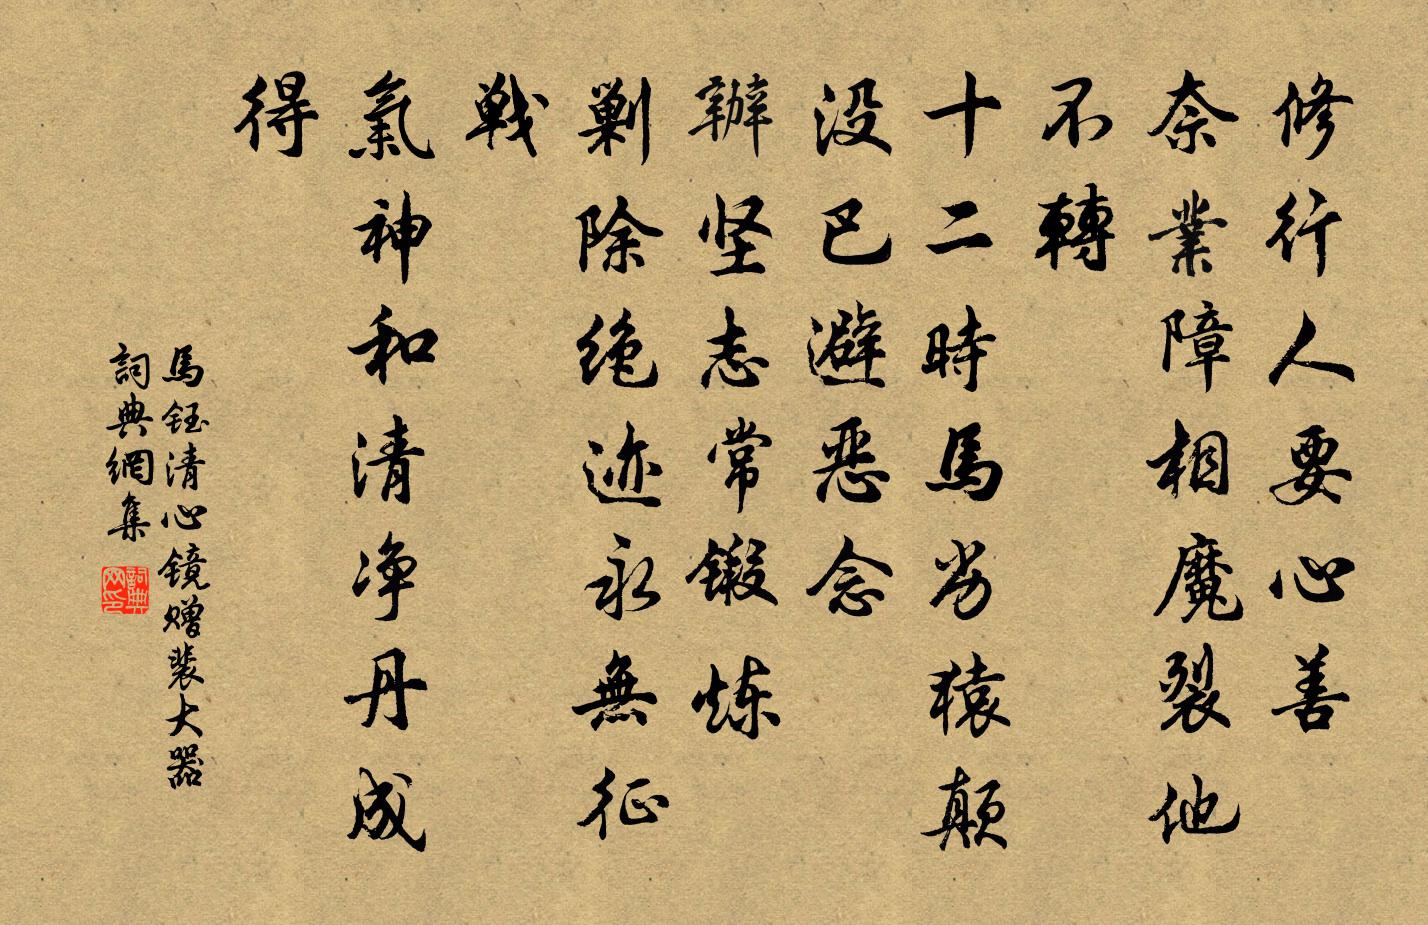 修行人要心善
奈業障相魔裂他
不轉
十二時馬劣猿顛
没巴避恶念
辦坚志常鍛炼
剿除绝迹永無征
戦
氣神和清净丹成
得
馬鈺清心镜赠裴大器
詞典網集
詞典
网印